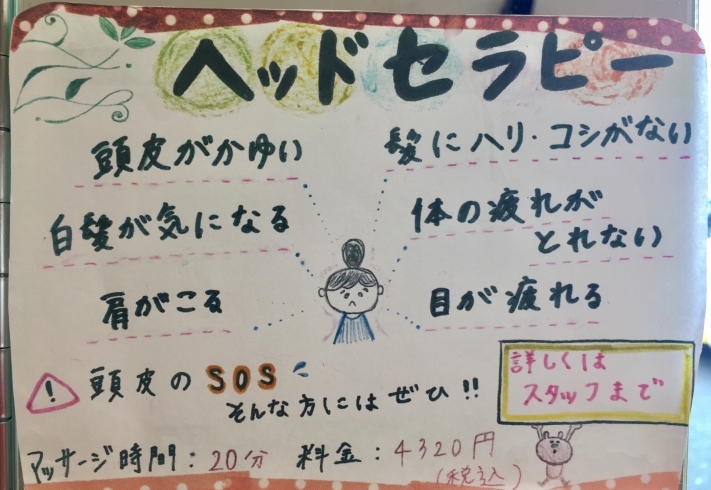 ヘッドセラピー
頭皮がかゆい
髪にハリ・コシがない
白髪が気になる
体の疲れが
とれない
肩がこる
目が疲れる
頭皮のSOS
そんな方にはぜひ!!
詳しくは
スタッフまで
マッサージ時間：20分 料金：4320円
(税込)